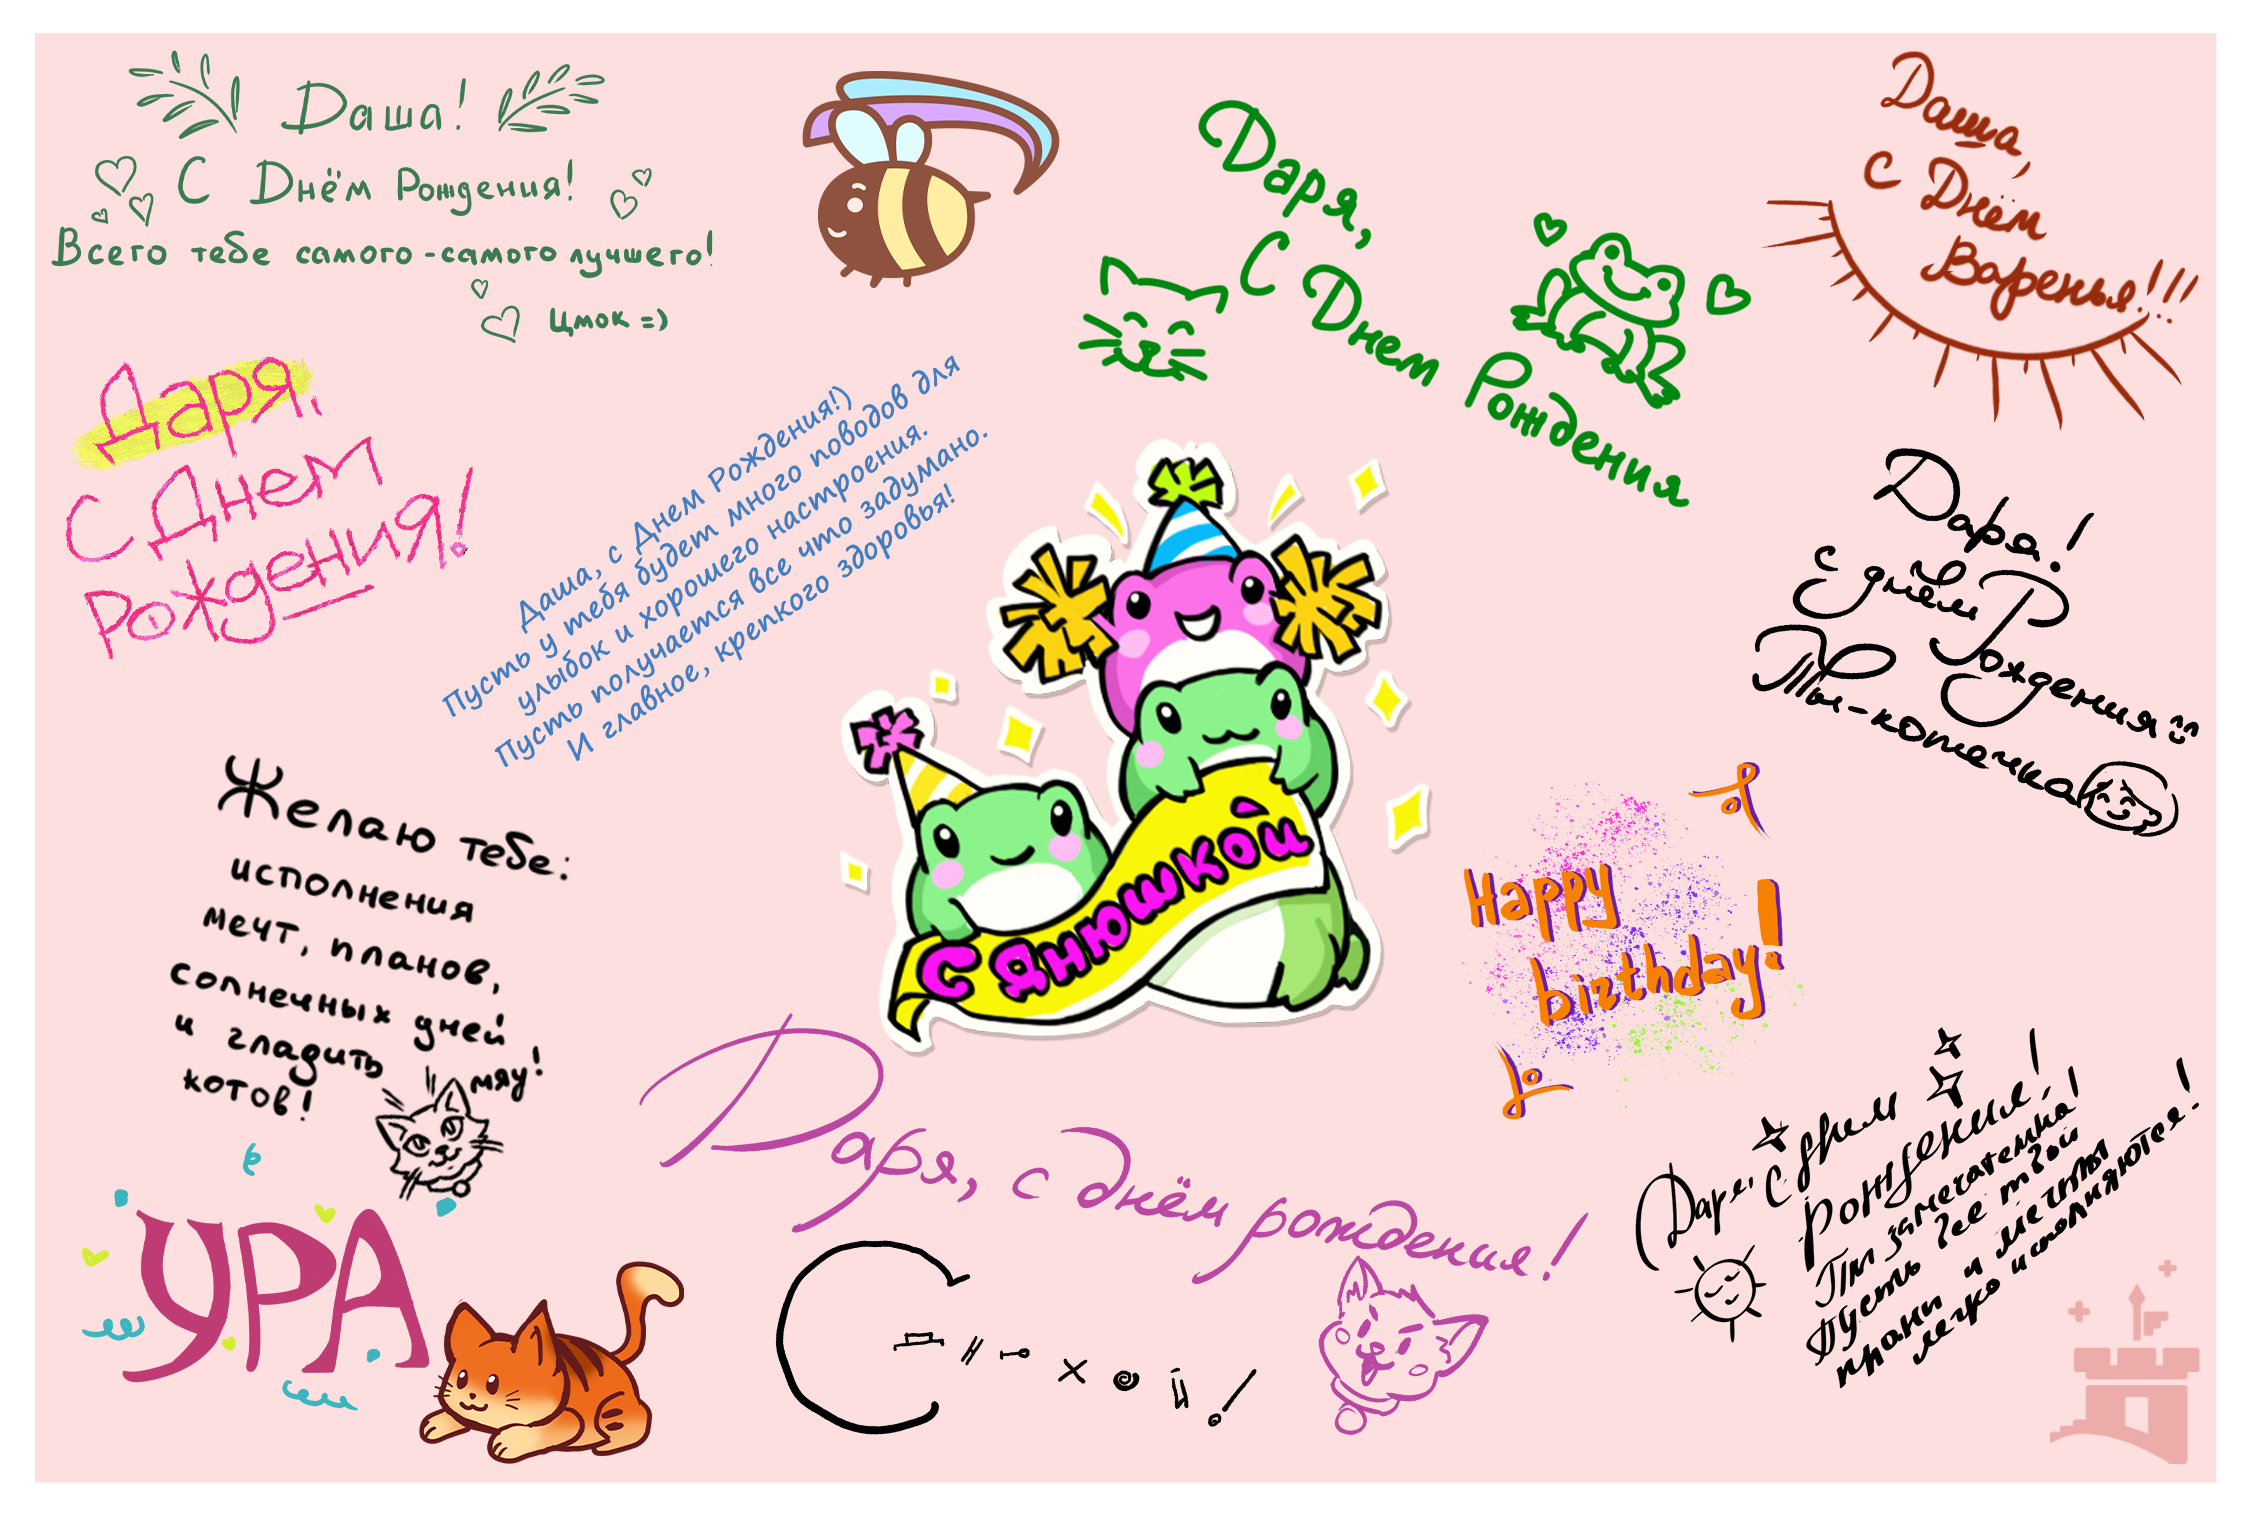 Даша!
С Днём Рождения!
Всего тебе самого-самого лучшего!
Цмок =)
Даря,
С Днем
Рождения
Даша,
С Днём
Варенья!!!
Даря,
С Днем
Рождения!
Даша, с Днем Рождения!)
Пусть у тебя будет много поводов для
улыбок и хорошего настроения.
Пусть получается все что задумано.
И главное, крепкого здоровья!
Даря!
С днём
Рождения
Ты-котечка
С днюшкой
Желаю тебе:
исполнения
мечт, планов,
солнечных дней
и гладить
котов!
мяу!
Happy
birthday!
Даря, с днём рождения!
УРА
С
днюхой!
Даря,
С днём
рождения!
Ты замечательна!
Пусть все твои
планы и мечты
легко исполняются!